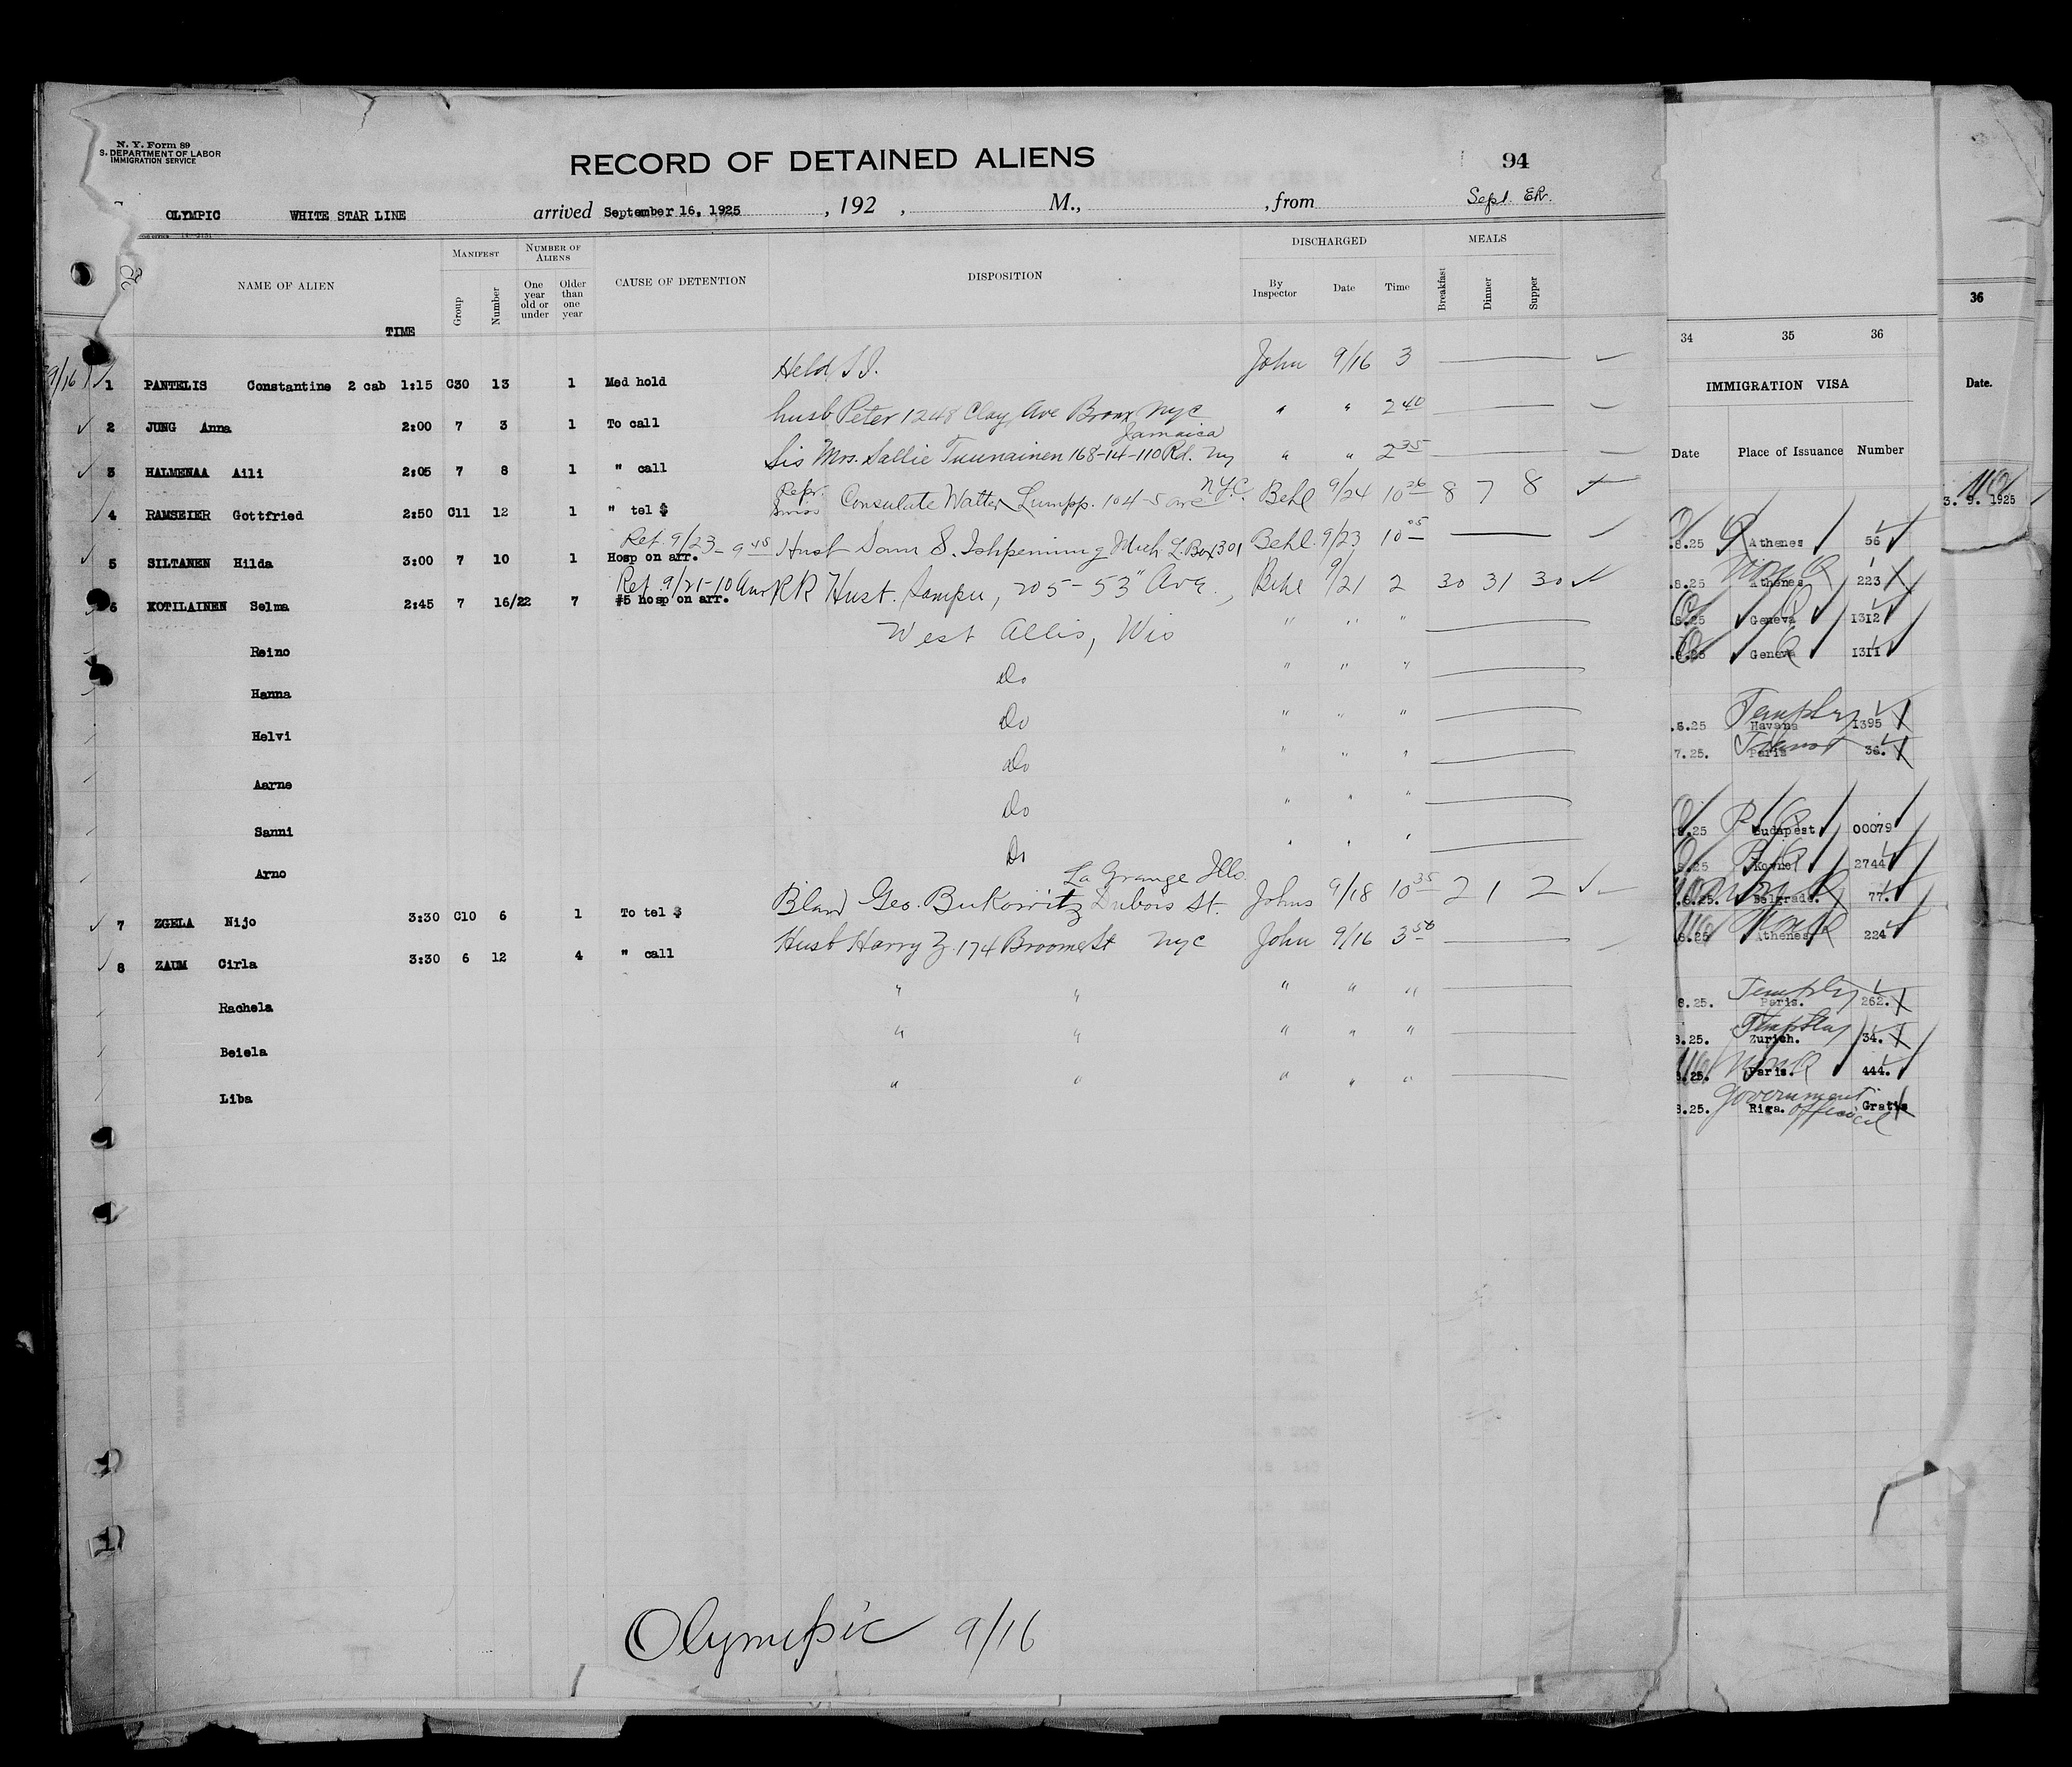 N. Y. Form 89
S. DEPARTMENT OF LABOR
IMMIGRATION SERVICE
RECORD OF DETAINED ALIENS
94
OLYMPIC WHITE STAR LINE arrived September 16, 1925, 192 , M., , from Sept. ER.
NAME OF ALIEN
TIME
MANIFEST
Group Number
NUMBER OF ALIENS
One year old or under
Older than one year
CAUSE OF DETENTION
DISPOSITION
DISCHARGED
By Inspector Date Time
MEALS
Breakfast Dinner Supper
9/16 1 PANTELIS Constantine 2 cab 1:15 C30 13 1 Med hold Held S.I. John 9/16 3
2 JUNG Anna 2:00 7 3 1 To call husb Peter 1248 Clay Ave Bronx NYC " " 2 40
Jamaica
3 HALMENAA Aili 2:05 7 8 1 " call Sis Mrs. Sallie Tuunainen 168-14-110 Rd. NY " " 2 35
4 RAMSEIER Gottfried 2:50 C11 12 1 " tel $ Repr. Swiss Consulate Walter Lumpp. 104-5 ave N.Y.C. Behl 9/24 10 26 8 7 8
Ret. 9/23 - 9 45
5 SILTANEN Hilda 3:00 7 10 1 Hosp on arr. Husb Sam S. Ishpeming Mich L. Box 301 Behl 9/23 10 05
Ret 9/21-10 Am
6 KOTILAINEN Selma 2:45 7 16/22 7 #5 hosp on arr. RR Husb. Sampu, 205-53" Ave., Behl 9/21 2 30 31 30
West Allis, Wis " " "
Reino
Do " " "
Hanna
Do " " "
Helvi
Do " " "
Aarne
Do " " "
Sanni
Do " " "
Arno
La Grange Ills.
7 ZGELA Nijo 3:30 C10 6 1 To tel $ Geo. Bukowitz Dubois St. Johns 9/18 10 35 2 1 2
8 ZAUM Cirla 3:30 6 12 4 " call Husb Harry Z. 174 Broome St NYC John 9/16 3 50
Rachela " " " " "
Beiela " " " " "
Liba " " " " "
Olympic 9/16
34 35 36
IMMIGRATION VISA
Date Place of Issuance Number
.8.25 Athenes 56
.8.25 Athenes 223
.8.25 Geneva 1312
.8.25 Geneva 1311
.8.25 Havana 1395
7.25. Paris 36.
.8.25 Budapest 00079
.8.25 Kovno 2744
.8.25. Belgrade. 77.
.8.25 Athenes 224
8.25. Paris. 262.
8.25. Zurich. 34.
8.25. Paris. 444.
8.25. Riga. Gratis
Government official
36
Date.
3. 9. 1925